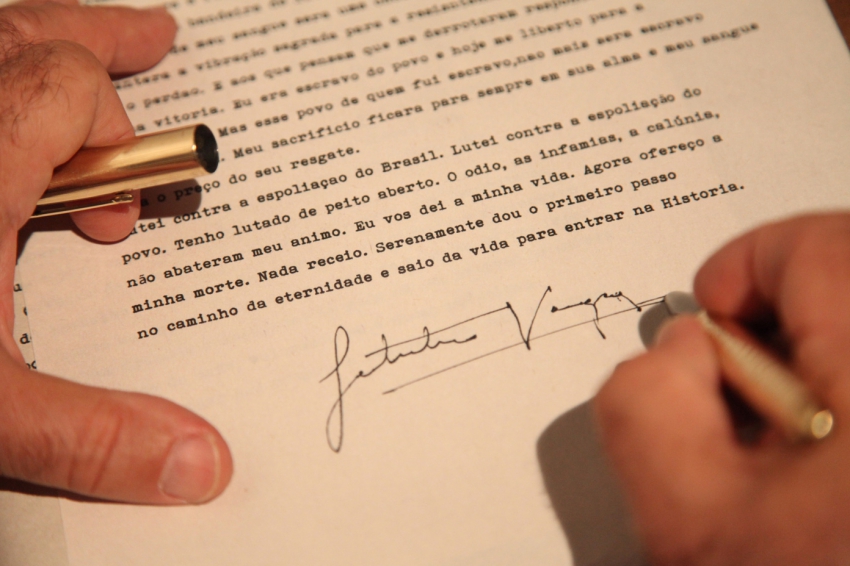 bandeira
meu sangue sera uma
a vibração sagrada para a
o perdao. E aos que pensam que me derrotaram
vitoria. Eu era escravo do povo e hoje me liberto para a
Mas esse povo de quem fui escravo,nao mais sera escravo
. Meu sacrificio ficara para sempre em sua alma e meu sangue
o preço do seu resgate.
utei contra a espoliaçao do Brasil. Lutei contra a espoliação do
povo. Tenho lutado de peito aberto. O odio, as infamias, a calúnia,
não abateram meu animo. Eu vos dei a minha vida. Agora ofereço a
minha morte. Nada receio. Serenamente dou o primeiro passo
no caminho da eternidade e saio da vida para entrar na Historia.
Getulio Vargas